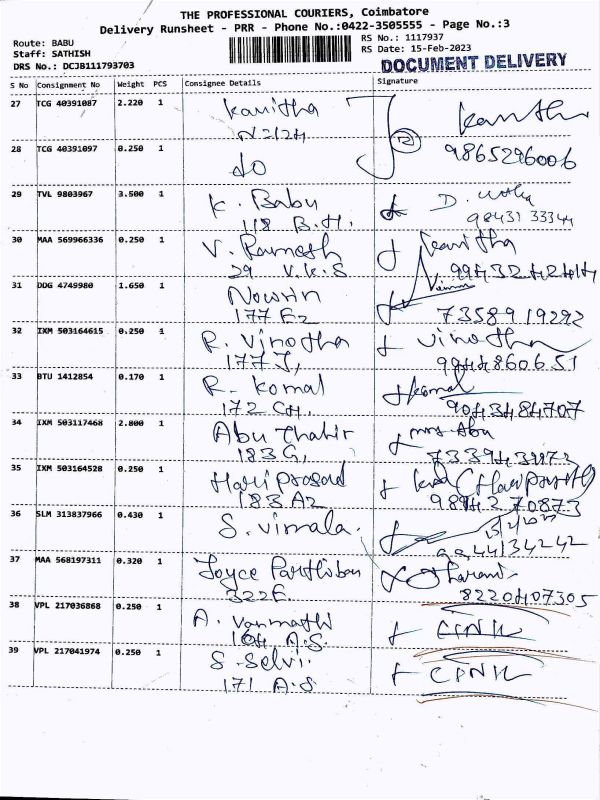 THE PROFESSIONAL COURIERS, Coimbatore
Delivery Runsheet - PRR - Phone No.:0422-3505555 - Page No.:3
Route: BABU
Staff: SATHISH
DRS No.: DCJB111793703
RS No.: 1117937
RS Date: 15-Feb-2023
DOCUMENT DELIVERY
S No Consignment No Weight PCS Consignee Details Signature
27 TCG 40391087 2.220 1 Kavitha
28 TCG 40391097 0.250 1 do 9865296006
29 TVL 9803967 3.500 1 K. Babu D.
118 B.H. 98431 33344
30 MAA 569966336 0.250 1 V. Ramesh Kavitha
29 V.K.S
31 DDG 4749980 1.650 1 Nowrin
177 F2 7358919292
32 IXM 503164615 0.250 1 R. Vinotha Vinotha
177 J, 9944860651
33 BTU 1412854 0.170 1 R. Komal Komal
172 CH. 9043484707
34 IXM 503117468 2.800 1 Abu Thahir mrs Abu
183 G,
35 IXM 503164528 0.250 1 Hari Prasad
183 A2 9894270873
36 SLM 313837966 0.430 1 S. Vimala.
9944134242
37 MAA 568197311 0.320 1 Joyce Parthiban Tharani
322F. 8220407305
38 VPL 217036868 0.250 1 A. Vanmathi
164 A.S.
39 VPL 217041974 0.250 1 S. Selvi.
171 A.S